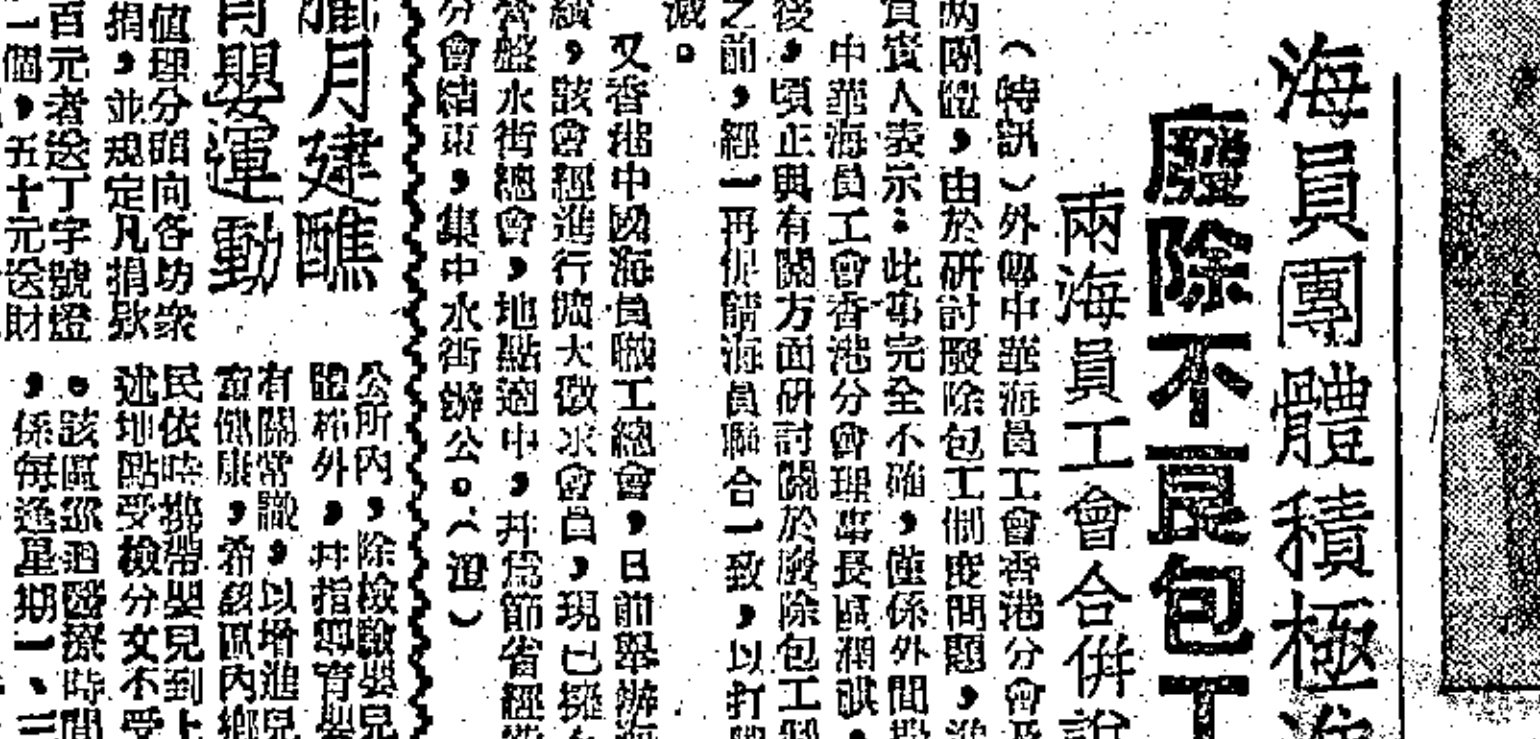 海員團體積極準
廢除不良包工
兩海員工會合併說
（特訊）外傳中華海員工會香港分會及
兩團體，由於研討廢除包工制度問題，進
負責人表示：此事完全不確，僅係外間揣
中華海員工會香港分會理事長區潤
後，頃正與有關方面研討關於廢除包工制
之前，經一再促請海員聯合一致，以打
滅。
又香港中國海員職工總會，日前舉辦海
績，該會經進行擴大徵求會員，現已擬
營盤水街總會，地點適中，并為節省經
分會結束，集中水街辦公。（澄）
月建醮
育嬰運動
值理分頭向各坊衆
捐，並規定凡捐欵
百元者送丁字號燈
一個，五十元送財
公所內，除檢驗嬰兒
體格外，并指導育嬰
有關常識，以增進兒
童健康，希該區內鄉
民依時携帶嬰兒到上
述地點受檢分文不受
。該區巡迴醫療時間
，係每逢星期一、三